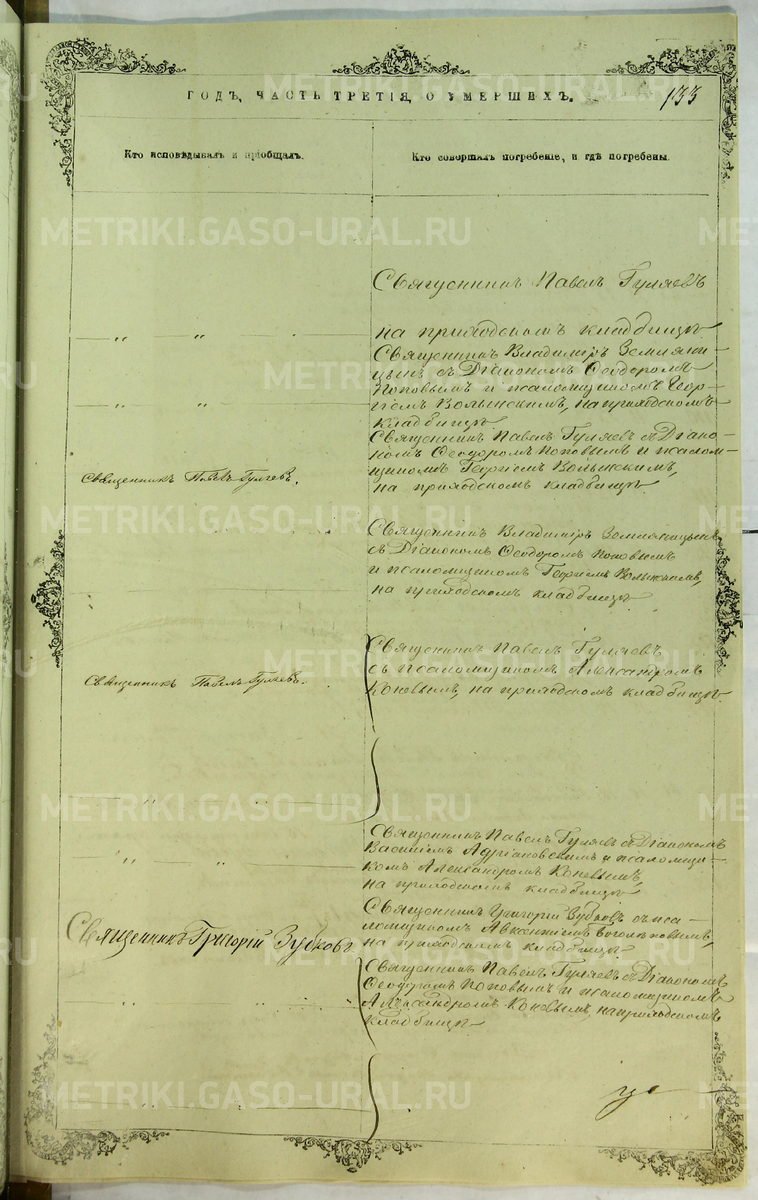 ГОДЪ, ЧАСТЬ ТРЕТІЯ, О УМЕРШИХЪ.
133
Кто исповѣдывалъ и пріобщалъ.
Кто совершалъ погребеніе, и гдѣ погребены.
METRIKI.GASO-URAL.RU
Священникъ Павелъ Гуляевъ
на приходскомъ кладбищѣ.
Священникъ Владиміръ Земляни-
цынъ съ Діакономъ Ѳеодоромъ
Поповымъ и псаломщикомъ Геор-
гіемъ Волынскимъ, на приходскомъ
кладбищѣ.
Священникъ Павелъ Гуляевъ съ Діако-
номъ Ѳеодоромъ Поповымъ и псалом-
щикомъ Георгіемъ Волынскимъ,
на приходскомъ кладбищѣ.
Священникъ Павелъ Гуляевъ.
Священникъ Владиміръ Земляницынъ
съ Діакономъ Ѳеодоромъ Поповымъ
и псаломщикомъ Георгіемъ Волынскимъ,
на приходскомъ кладбищѣ.
Священникъ Павелъ Гуляевъ
съ псаломщикомъ Александромъ
Коневымъ, на приходскомъ кладбищѣ.
Священникъ Павелъ Гуляевъ.
Священникъ Павелъ Гуляевъ съ Діакономъ
Василіемъ Адріановскимъ и псаломщи-
комъ Александромъ Коневымъ,
на приходскомъ кладбищѣ
Священникъ Григорій Зубковъ съ пса-
ломщикомъ Авксентіемъ Боголѣповымъ,
на приходскомъ кладбищѣ.
Священникъ Григорій Зубковъ
Священникъ Павелъ Гуляевъ съ Діакономъ
Ѳеодоромъ Поповымъ и псаломщикомъ
Александромъ Коневымъ, на приходскомъ
кладбищѣ.